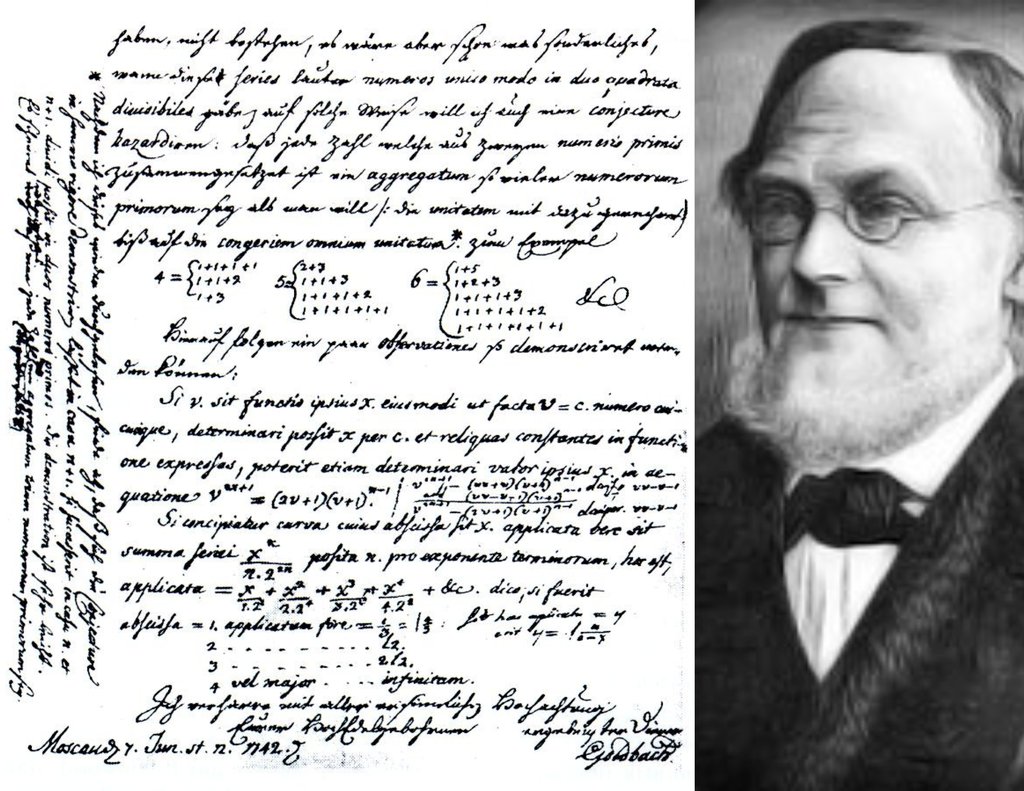 haben, nicht bestehen, es wäre aber schon was sonderliches,
wann diese series lauter numeros unico modo in duo quadrata
divisibiles gäbe, auf solche Weise will ich auch eine conjecture
hazardiren: daß jede Zahl welche aus zweyen numeris primis
zusammengesetzet ist ein aggregatum so vieler numerorum
primorum sey als man will /: die unitatem mit dazu gerechnet)
biß auf die congeriem omnium unitatum*. zum Exempel
4 = { 1+1+1+1
1+1+2
1+3
5 = { 2+3
1+1+3
1+1+1+2
1+1+1+1+1
6 = { 1+5
1+2+3
1+1+1+3
1+1+1+1+2
1+1+1+1+1+1
&c
Hierauf folgen ein paar observationes so demonstriret wer-
den können:
Si v. sit functio ipsius x. eiusmodi ut facta v = c. numero cui-
cunque, determinari possit x per c. et reliquas constantes in functi-
one expressas, poterit etiam determinari valor ipsius x. in ae-
quatione v^{2n+1} = (2v+1)(v+1)^{n-1}
Si concipiatur curva cuius abscissa sit x. applicata vero sit
summa seriei x^n/(n.2^{2n}) posita n. pro exponente terminorum, hoc est,
applicata = x/(1.2^2) + x^2/(2.2^4) + x^3/(3.2^6) + x^4/(4.2^8) + &c. dico, si fuerit
abscissa = 1. applicatam fore =
2 - - - - - - - l2.
3 - - - - - - - 2l2.
4 vel major - - - - infinitam.
Ich verharre mit aller ersinnlichen Hochachtung
Eurer Hochedelgebohrnen
ergebenster Diener
Moscau 7. Jun. st. n. 1742.
Goldbach.
* Nachdem ich dieses wieder durchgelesen, finde ich, daß sich die Conjecture
in summo rigore demonstriren läßet in casu n+1. si successerit in casu n. et
n+1. dividi possit in duos numeros primos. Die demonstration ist sehr leicht.
Es scheinet wenigstens, daß eine jede Zahl ein aggregatum trium numerorum primorum sey.